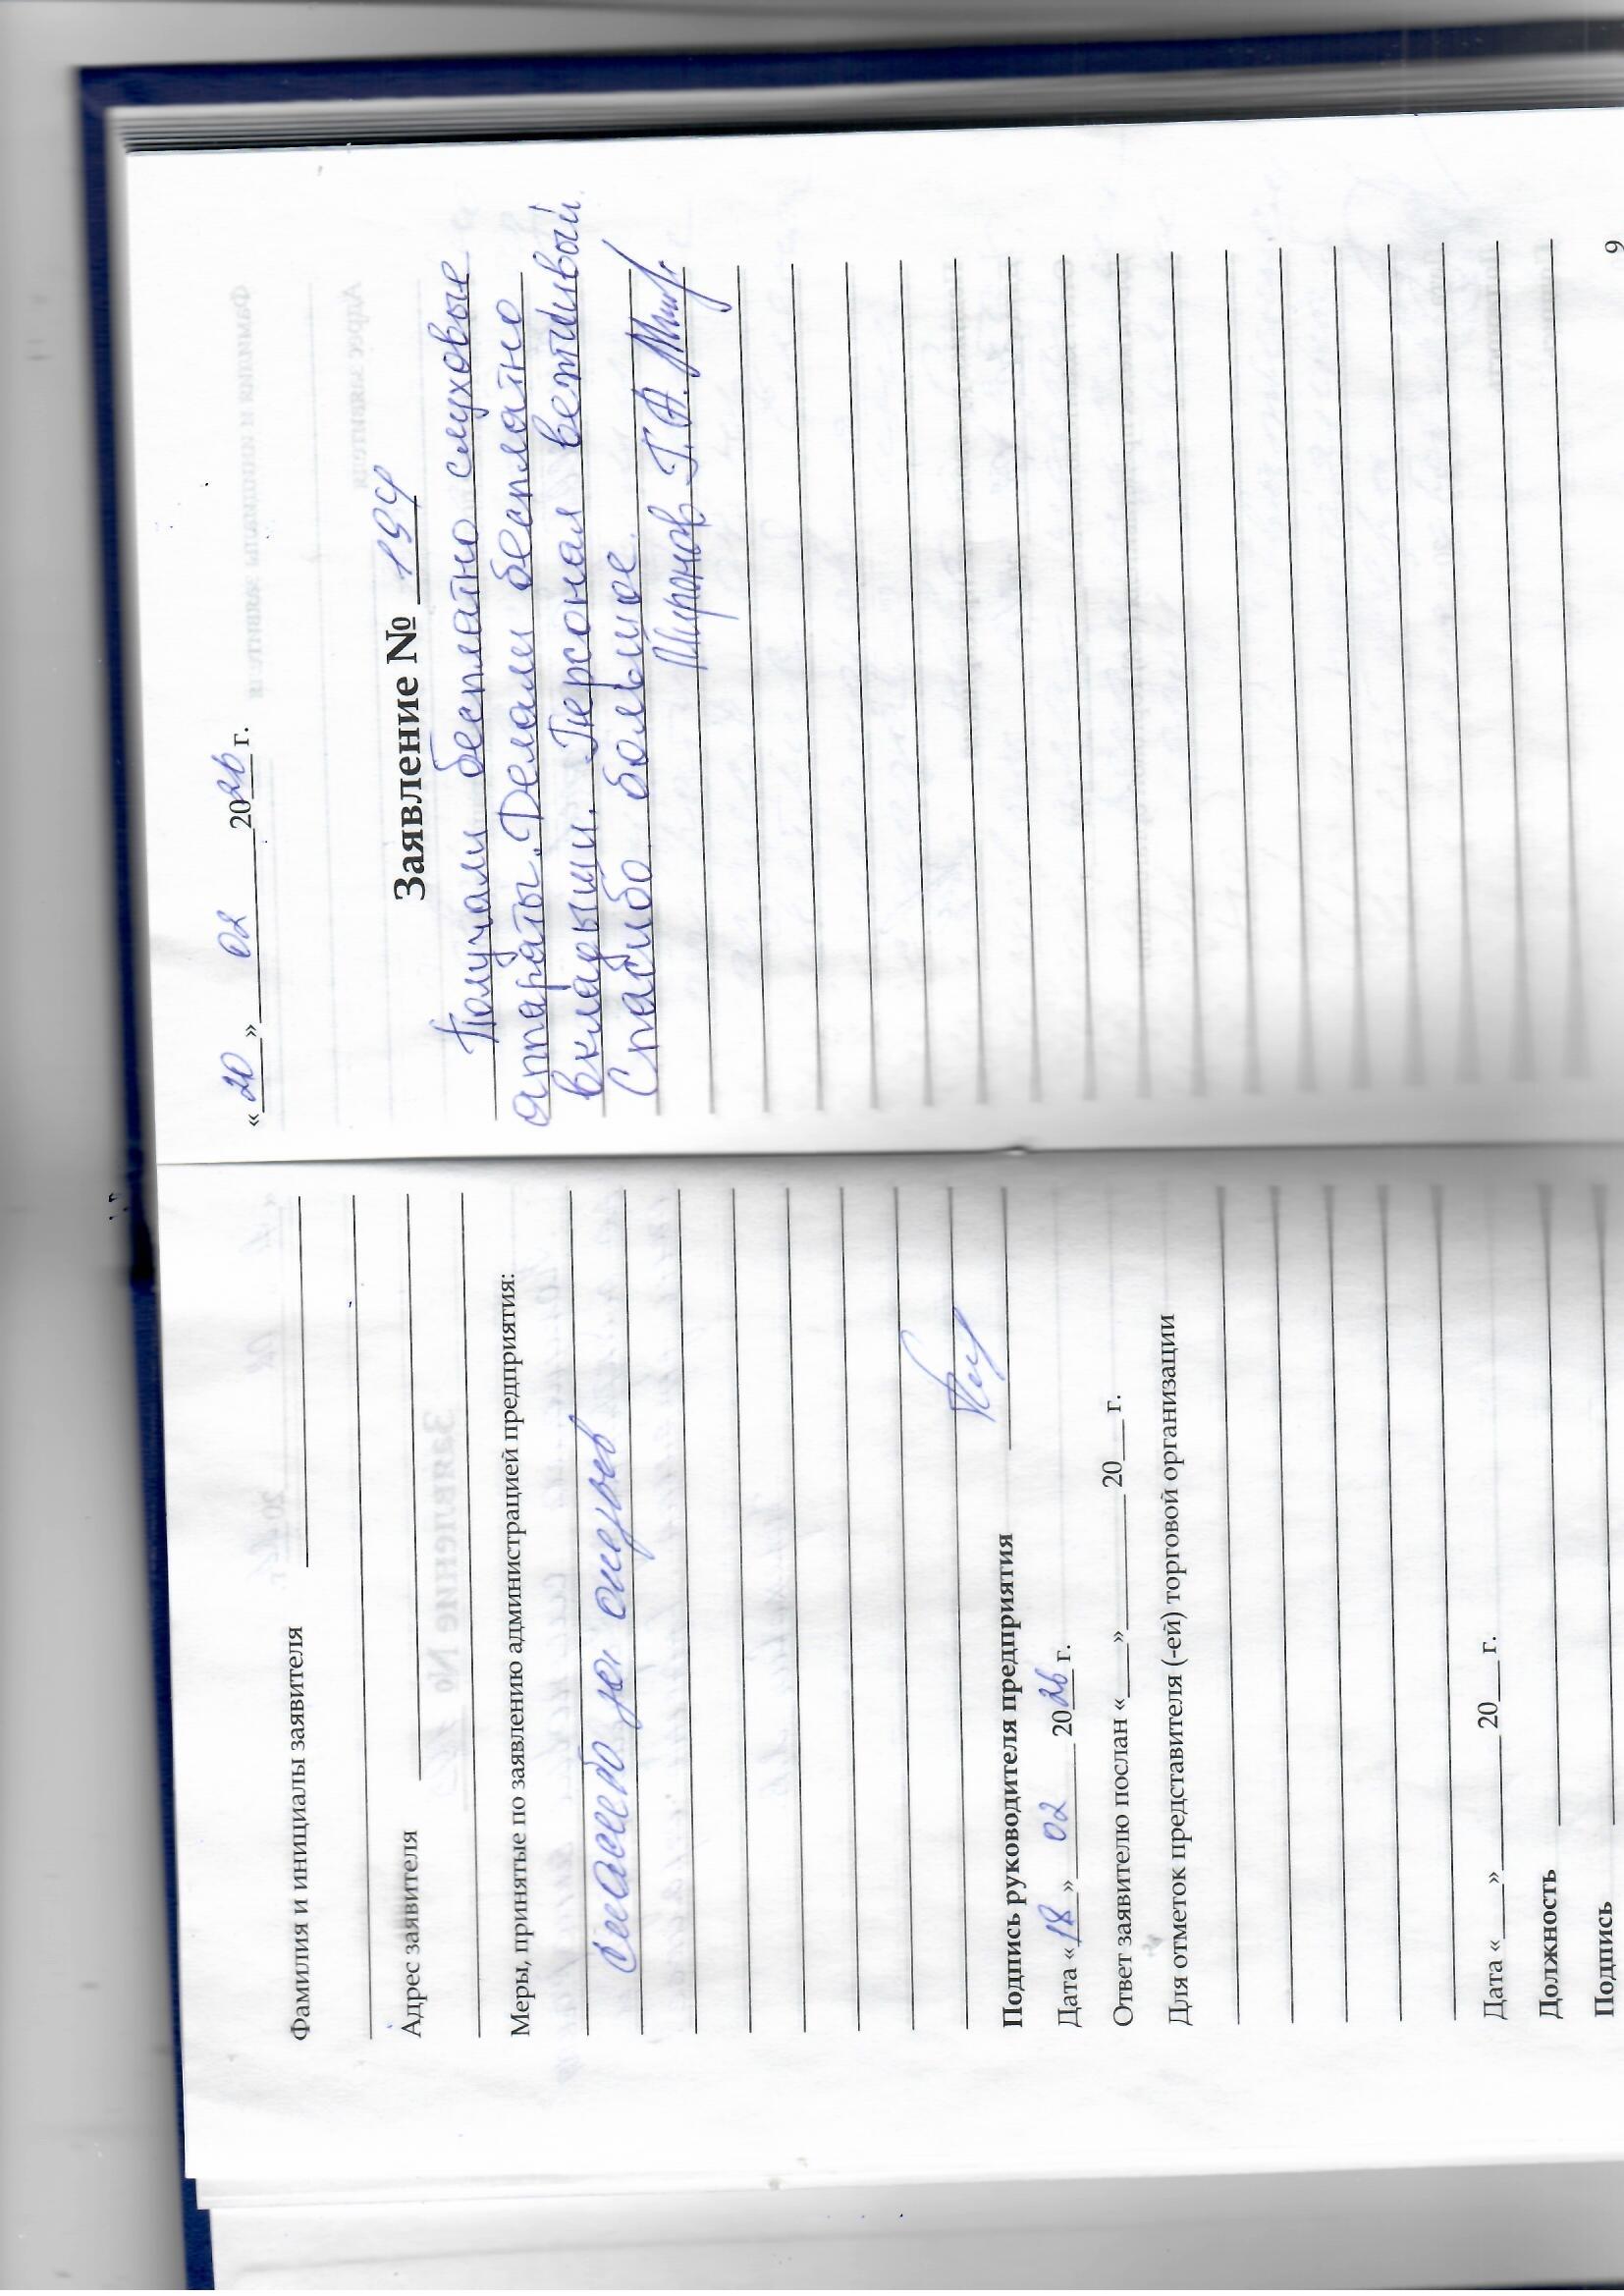 Фамилия и инициалы заявителя
Адрес заявителя
Меры, принятые по заявлению администрацией предприятия:
спасибо за
Подпись руководителя предприятия
Дата «18» 02 2026 г.
Ответ заявителю послан «___»______20__г.
Для отметок представителя (-ей) торговой организации
Дата «___»______20__г.
Должность
Подпись
«20» 02 2026 г.
Заявление № 194
Получали бесплатно слуховые
аппараты. Делали бесплатно
вкладыши. Персонал вежливый.
Спасибо большое.
Миронов Г.А.
9